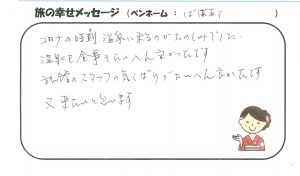 旅の幸せメッセージ （ペンネーム：ばぁばぁ ）
コロナの時期温泉に来るのがたのしみでした
温泉も食事もたいへん良かったです
旅館のスタッフの気くばりがたいへん良かったです
又来たいと思います